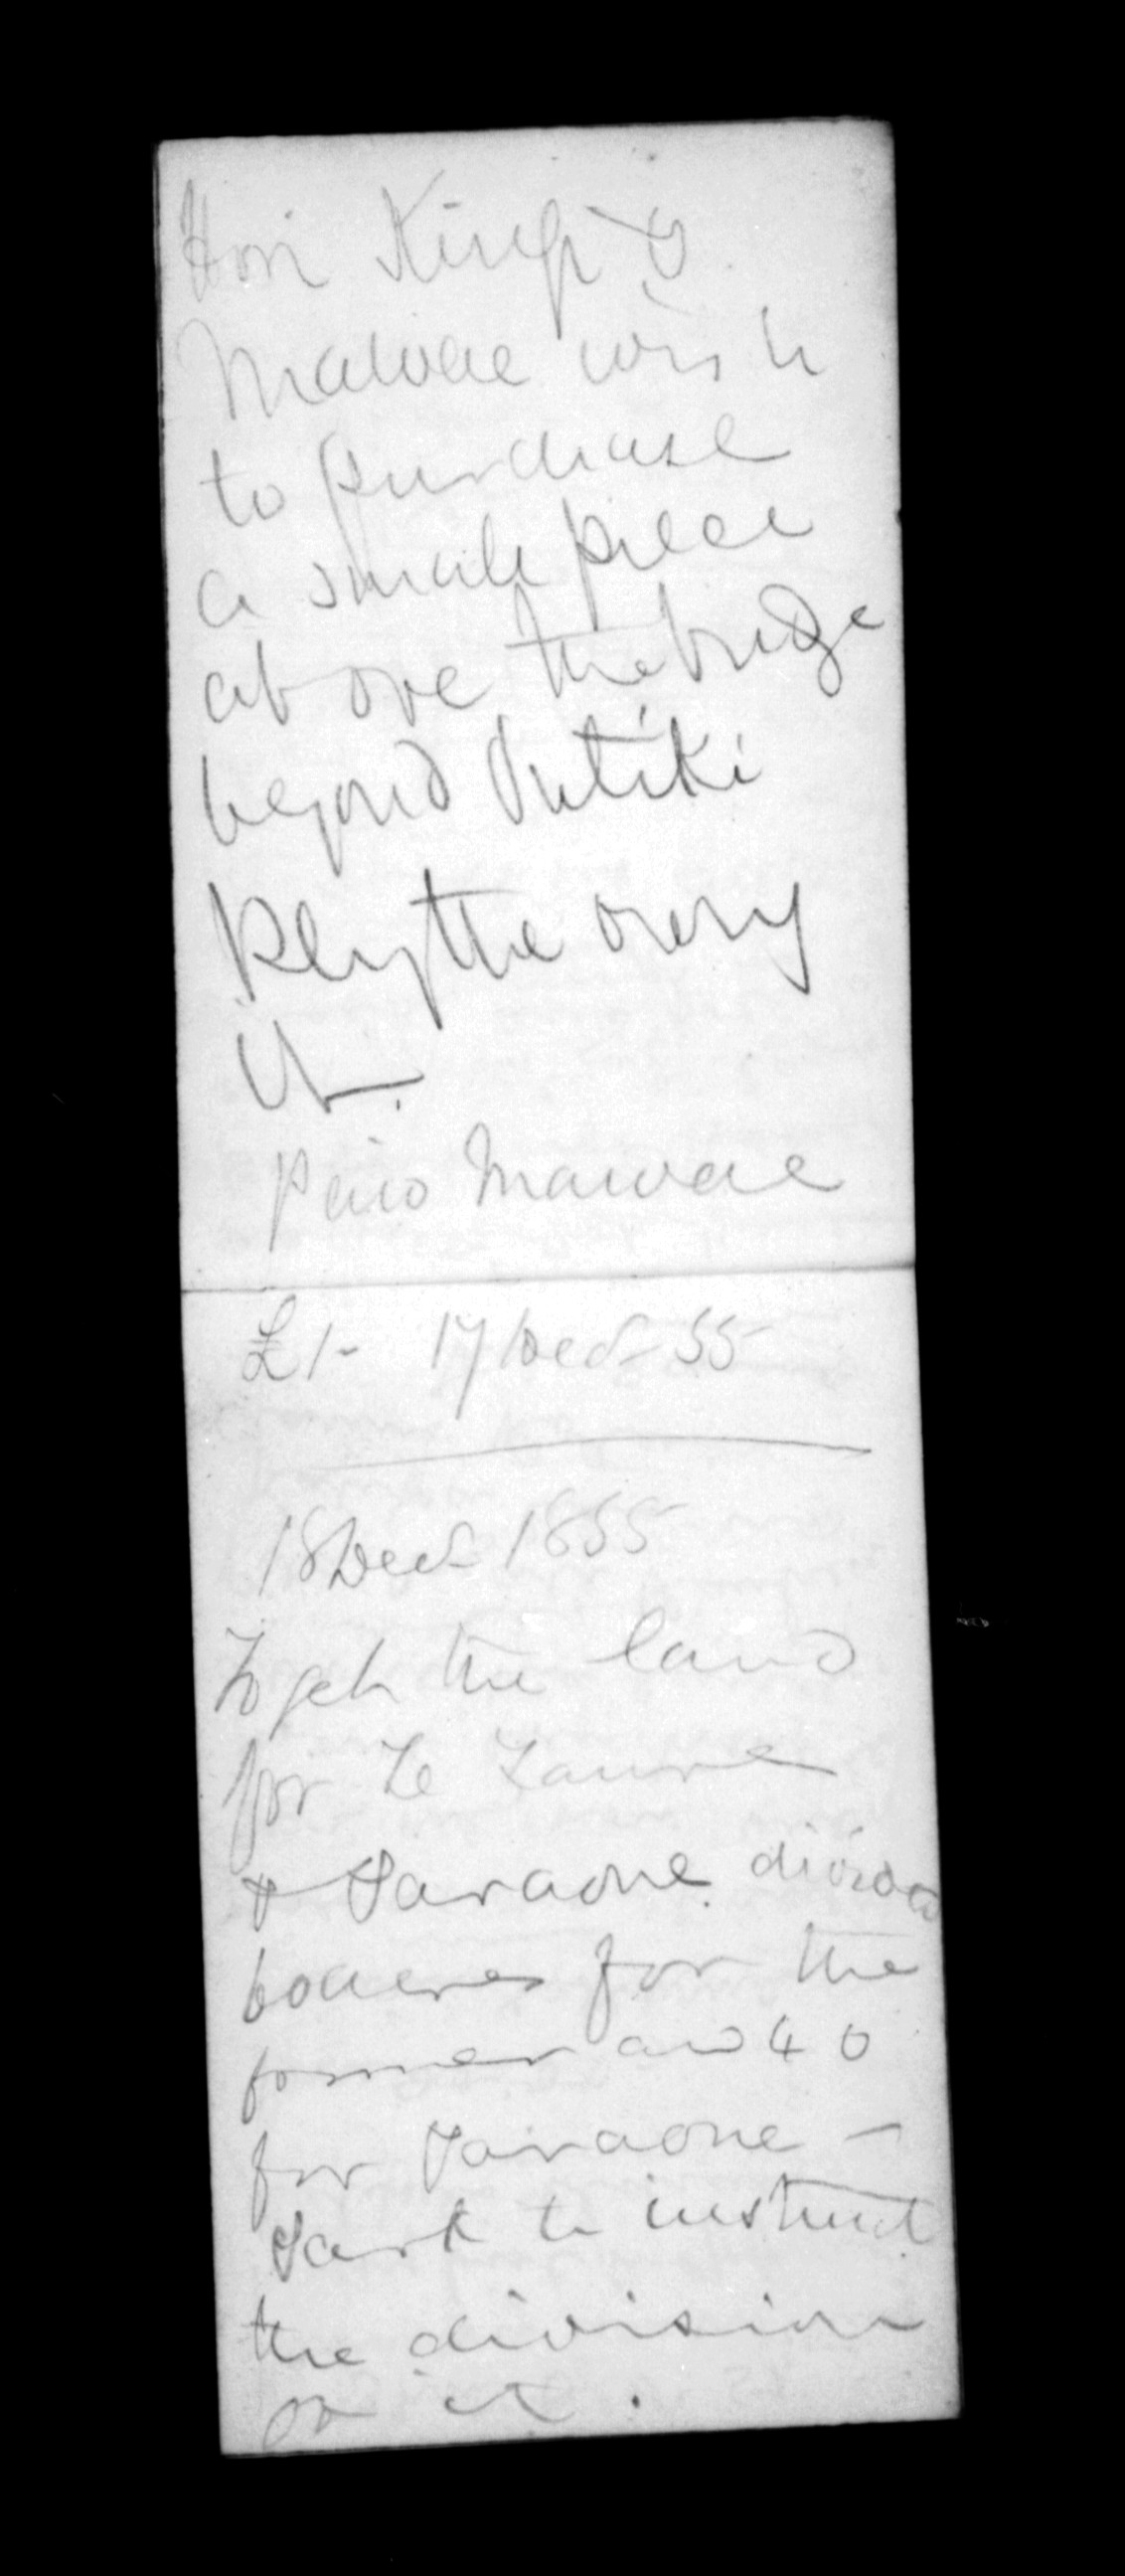 Hori Kingi &
Mawae wish
to purchase
a small piece
above the bridge
beyond Putiki
Blythe
Paid Mawae
£1- 17 Decr 55
18 Decr 1855
To get the land
for Te Tauru
& Paraone divided
60 acres for the
former and 40
for Paraone -
Park to instruct
the division
of it.